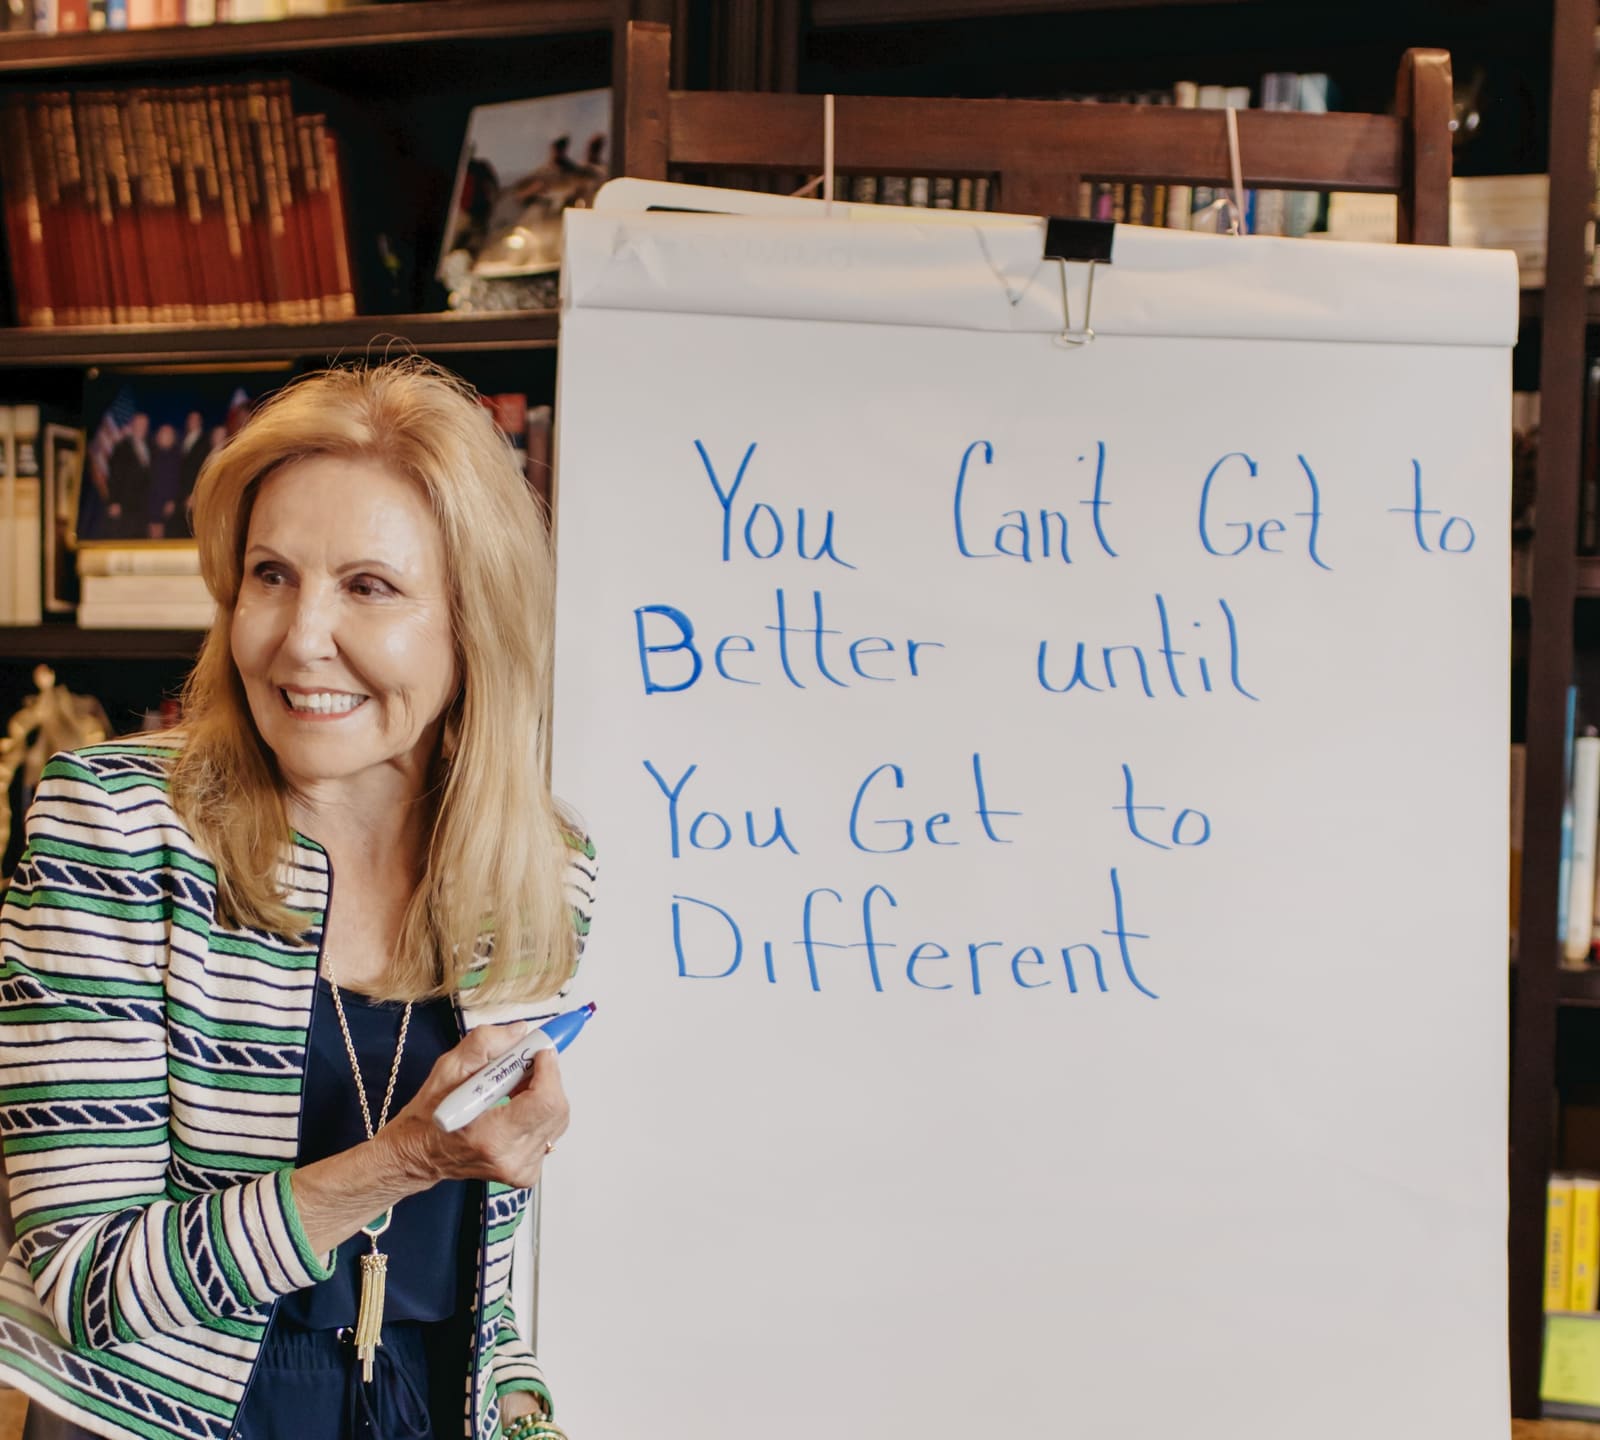 You Can't Get to
Better until
You Get to
Different
Sharpie